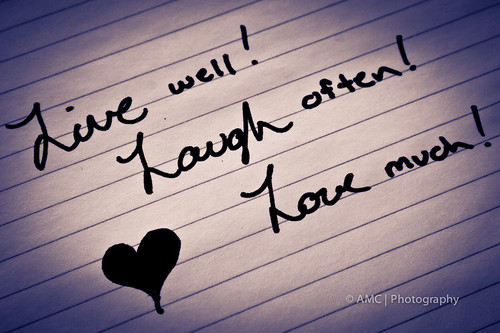 Live well!
Laugh often!
Love much!
© AMC | Photography